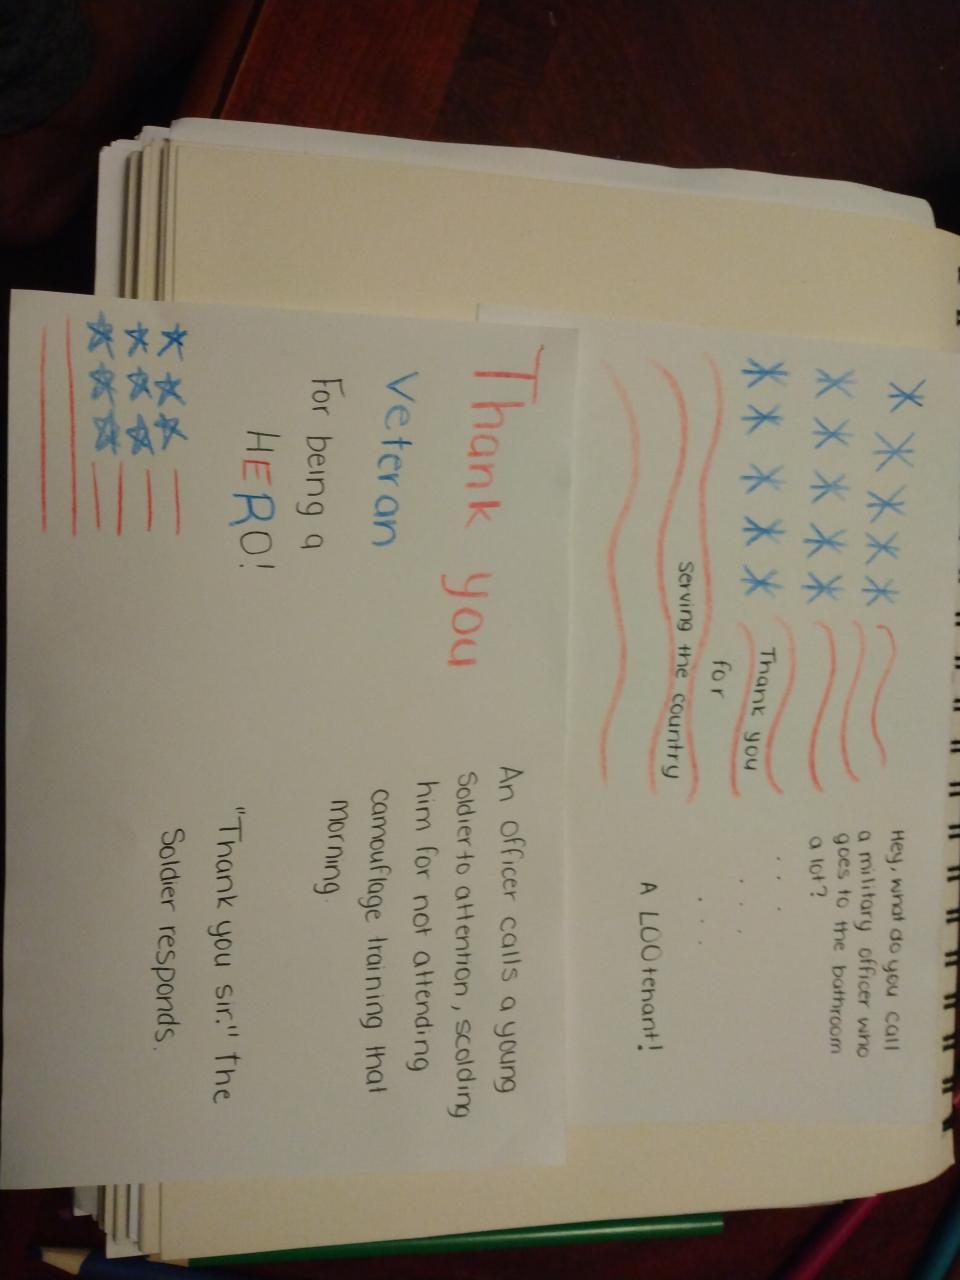 Thank you
for
Serving the country
Hey, what do you call
a military officer who
goes to the bathroom
a lot?
. . .
. . .
. . .
A LOOtenant!
Thank you
Veteran
For being a
HERO!
An officer calls a young
Soldier to attention, scolding
him for not attending
camouflage training that
morning.
"Thank you sir." The
Soldier responds.